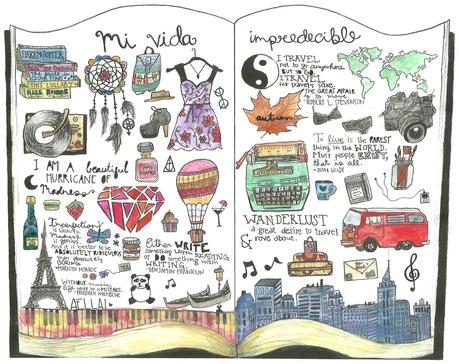 mi vida
impredecible
HARRY POTTER
THIS LULLABY
I AM A beautiful
HURRICANE OF
Madness
Imperfection
is beauty,
madness
is genius,
and it is better to be
ABSOLUTELY RIDICULOUS
than absolutely
BORING
-MARILYN MONROE
WITHOUT music,
life would be A MISTAKE.
Either WRITE
something worth READING
or DO something worth
WRITING.
-BENJAMIN FRANKLIN
I TRAVEL
not to go anywhere,
BUT TO GO.
I TRAVEL
for travel's sake.
THE GREAT AFFAIR
is to move.
ROBERT L. STEVENSON
autumn
To live is the RAREST
thing in the WORLD.
Most people EXIST,
that is all.
WANDERLUST
a great desire to travel
& rove about.